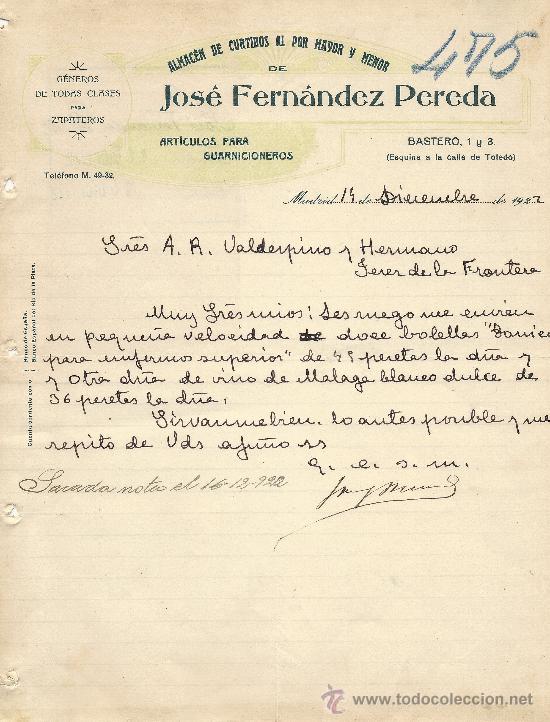 ALMACÉN DE CURTIDOS AL POR MAYOR Y MENOR
475
DE
José Fernández Pereda
GÉNEROS
DE TODAS CLASES
PARA
ZAPATEROS
ARTÍCULOS PARA
GUARNICIONEROS
BASTERO, 1 y 3
(Esquina a la calle de Toledo)
Teléfono M. 49-32.
Madrid 14 de Diciembre de 1922
Sres A. R. Valdespino y Hermano
Jerez de la Frontera
Muy Sres mios: Les ruego me envien
en pequeña velocidad de doce botellas "Tonico
para enfermo superior" de 45 pesetas la dña y
y otra dña de vino de Malaga blanco dulce de
36 pesetas la dña,
Sirvanmelo lo antes posible y me
repito de Vds afmo ss
q. e. s. m.
Sacada nota el 16-12-922
Cuenta corriente con el
Banco de España.
Banco Español del Río de la Plata.
www.todocoleccion.net